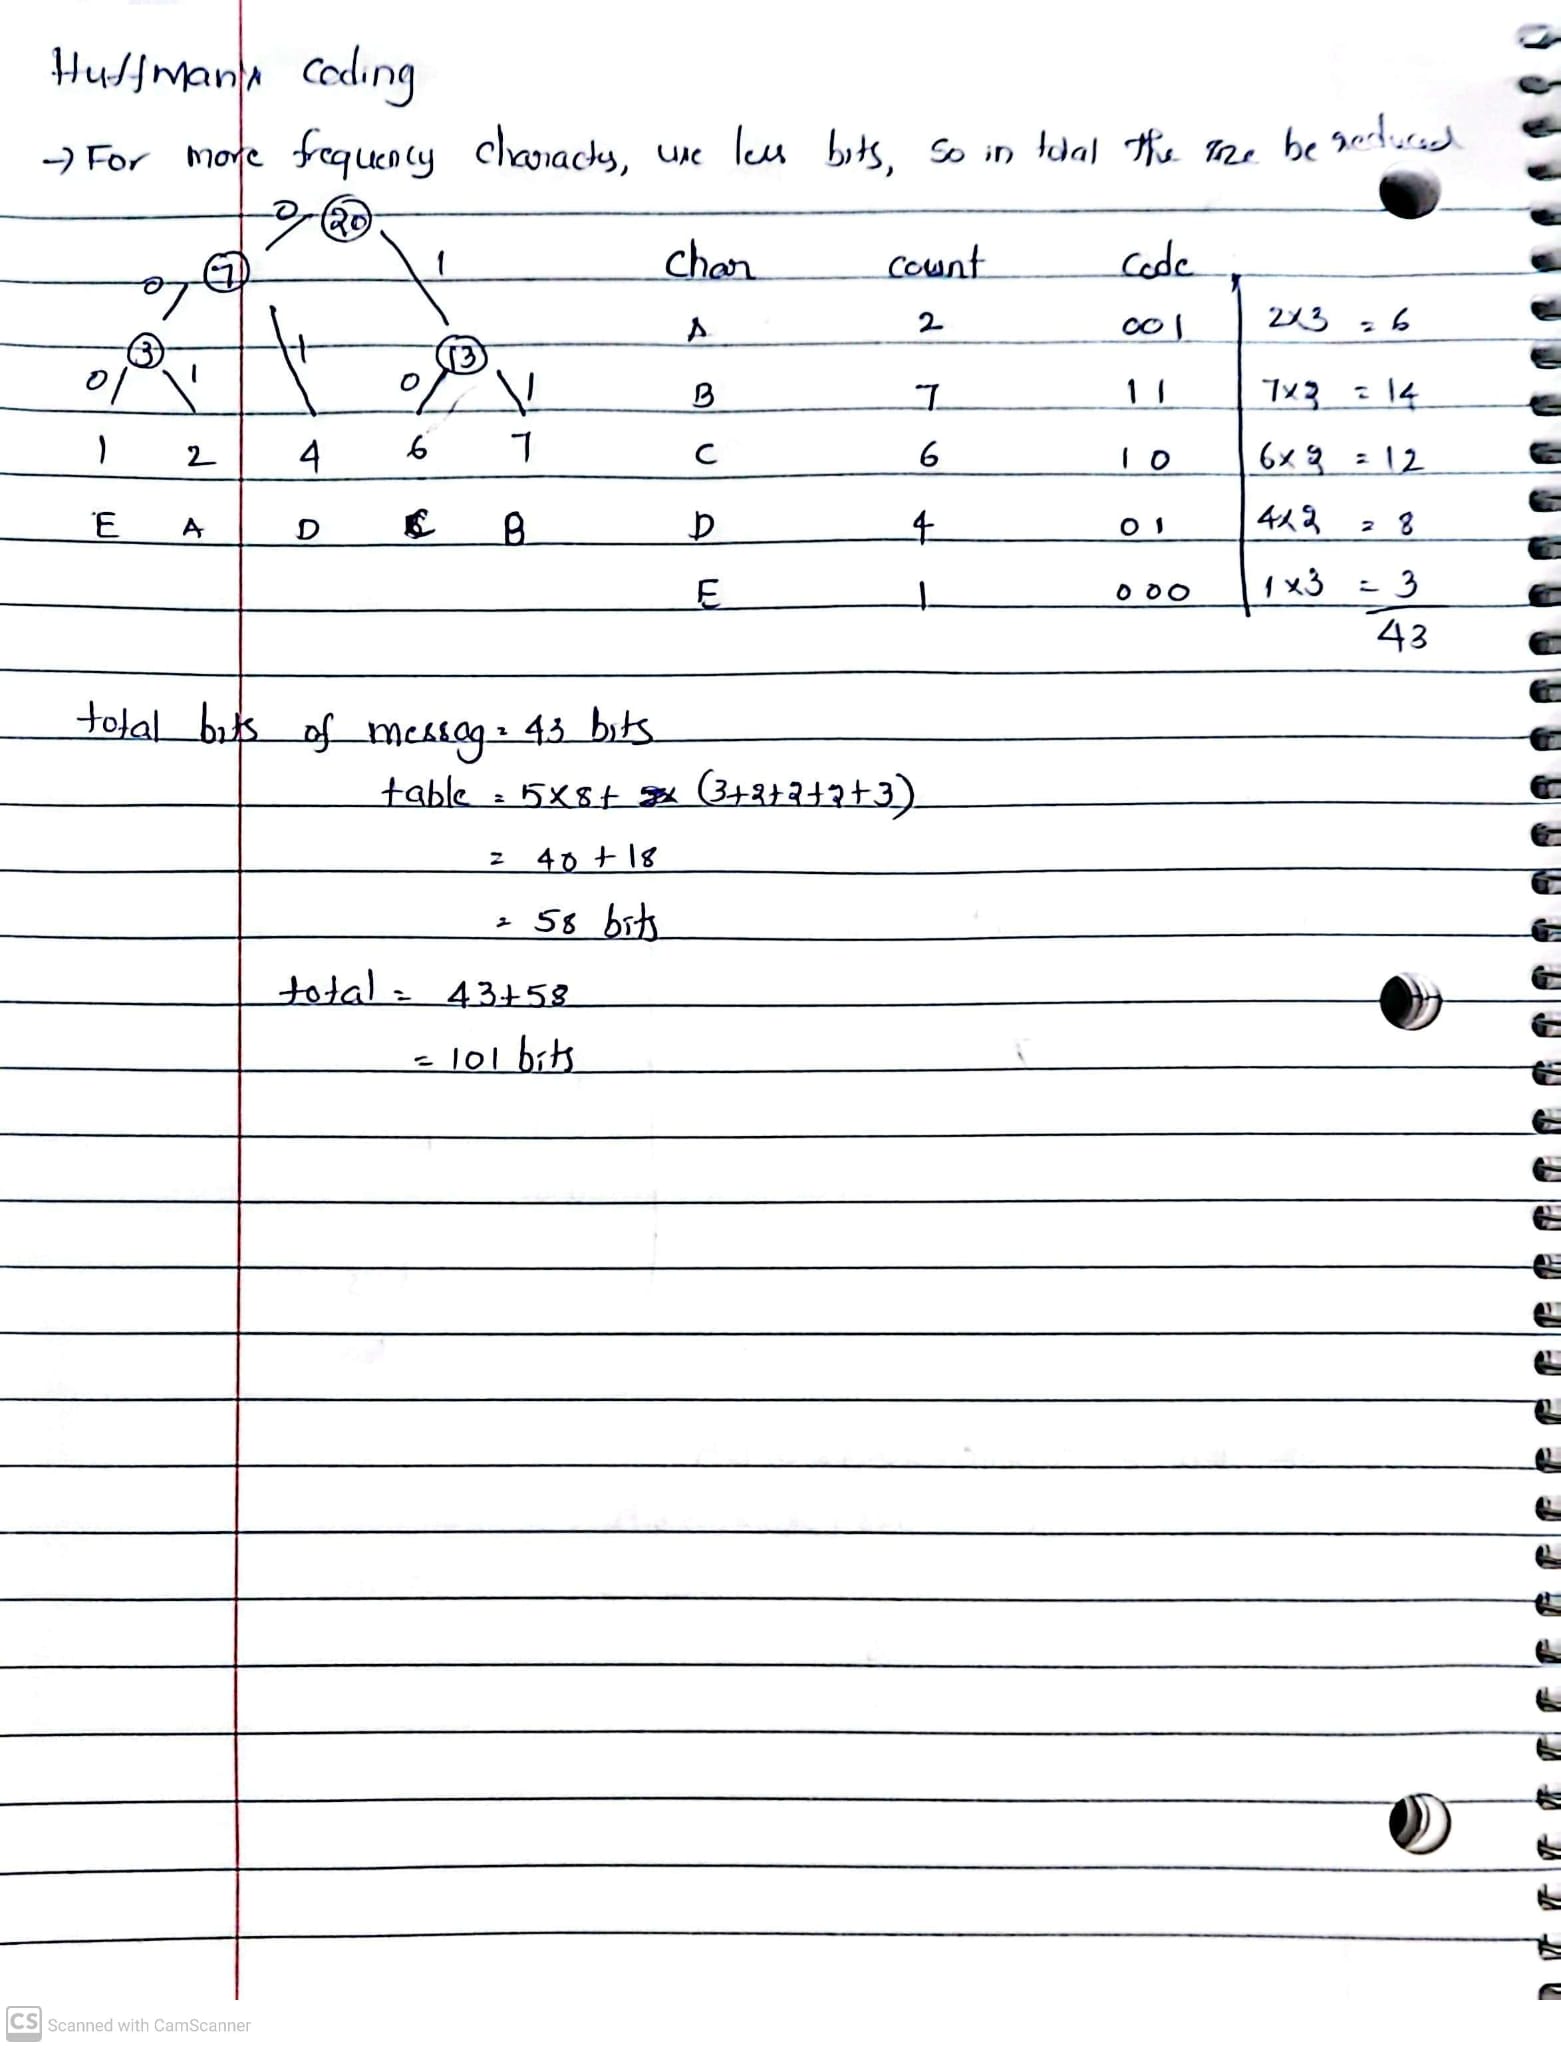 Huffman's coding
→ For more frequency characters, use less bits, so in total the size be reduced
0 20
7 1
0
char count code
3 1 13
A 2 001 2x3 = 6
0 1 0 1
B 7 11 7x2 = 14
1 2 4 6 7
C 6 10 6x2 = 12
E A D C B
D 4 01 4x2 = 8
E 1 000 1x3 = 3
43
total bits of messag = 43 bits
table = 5x8+ (3+2+2+2+3)
= 40 + 18
= 58 bits
total = 43+58
= 101 bits
CS Scanned with CamScanner